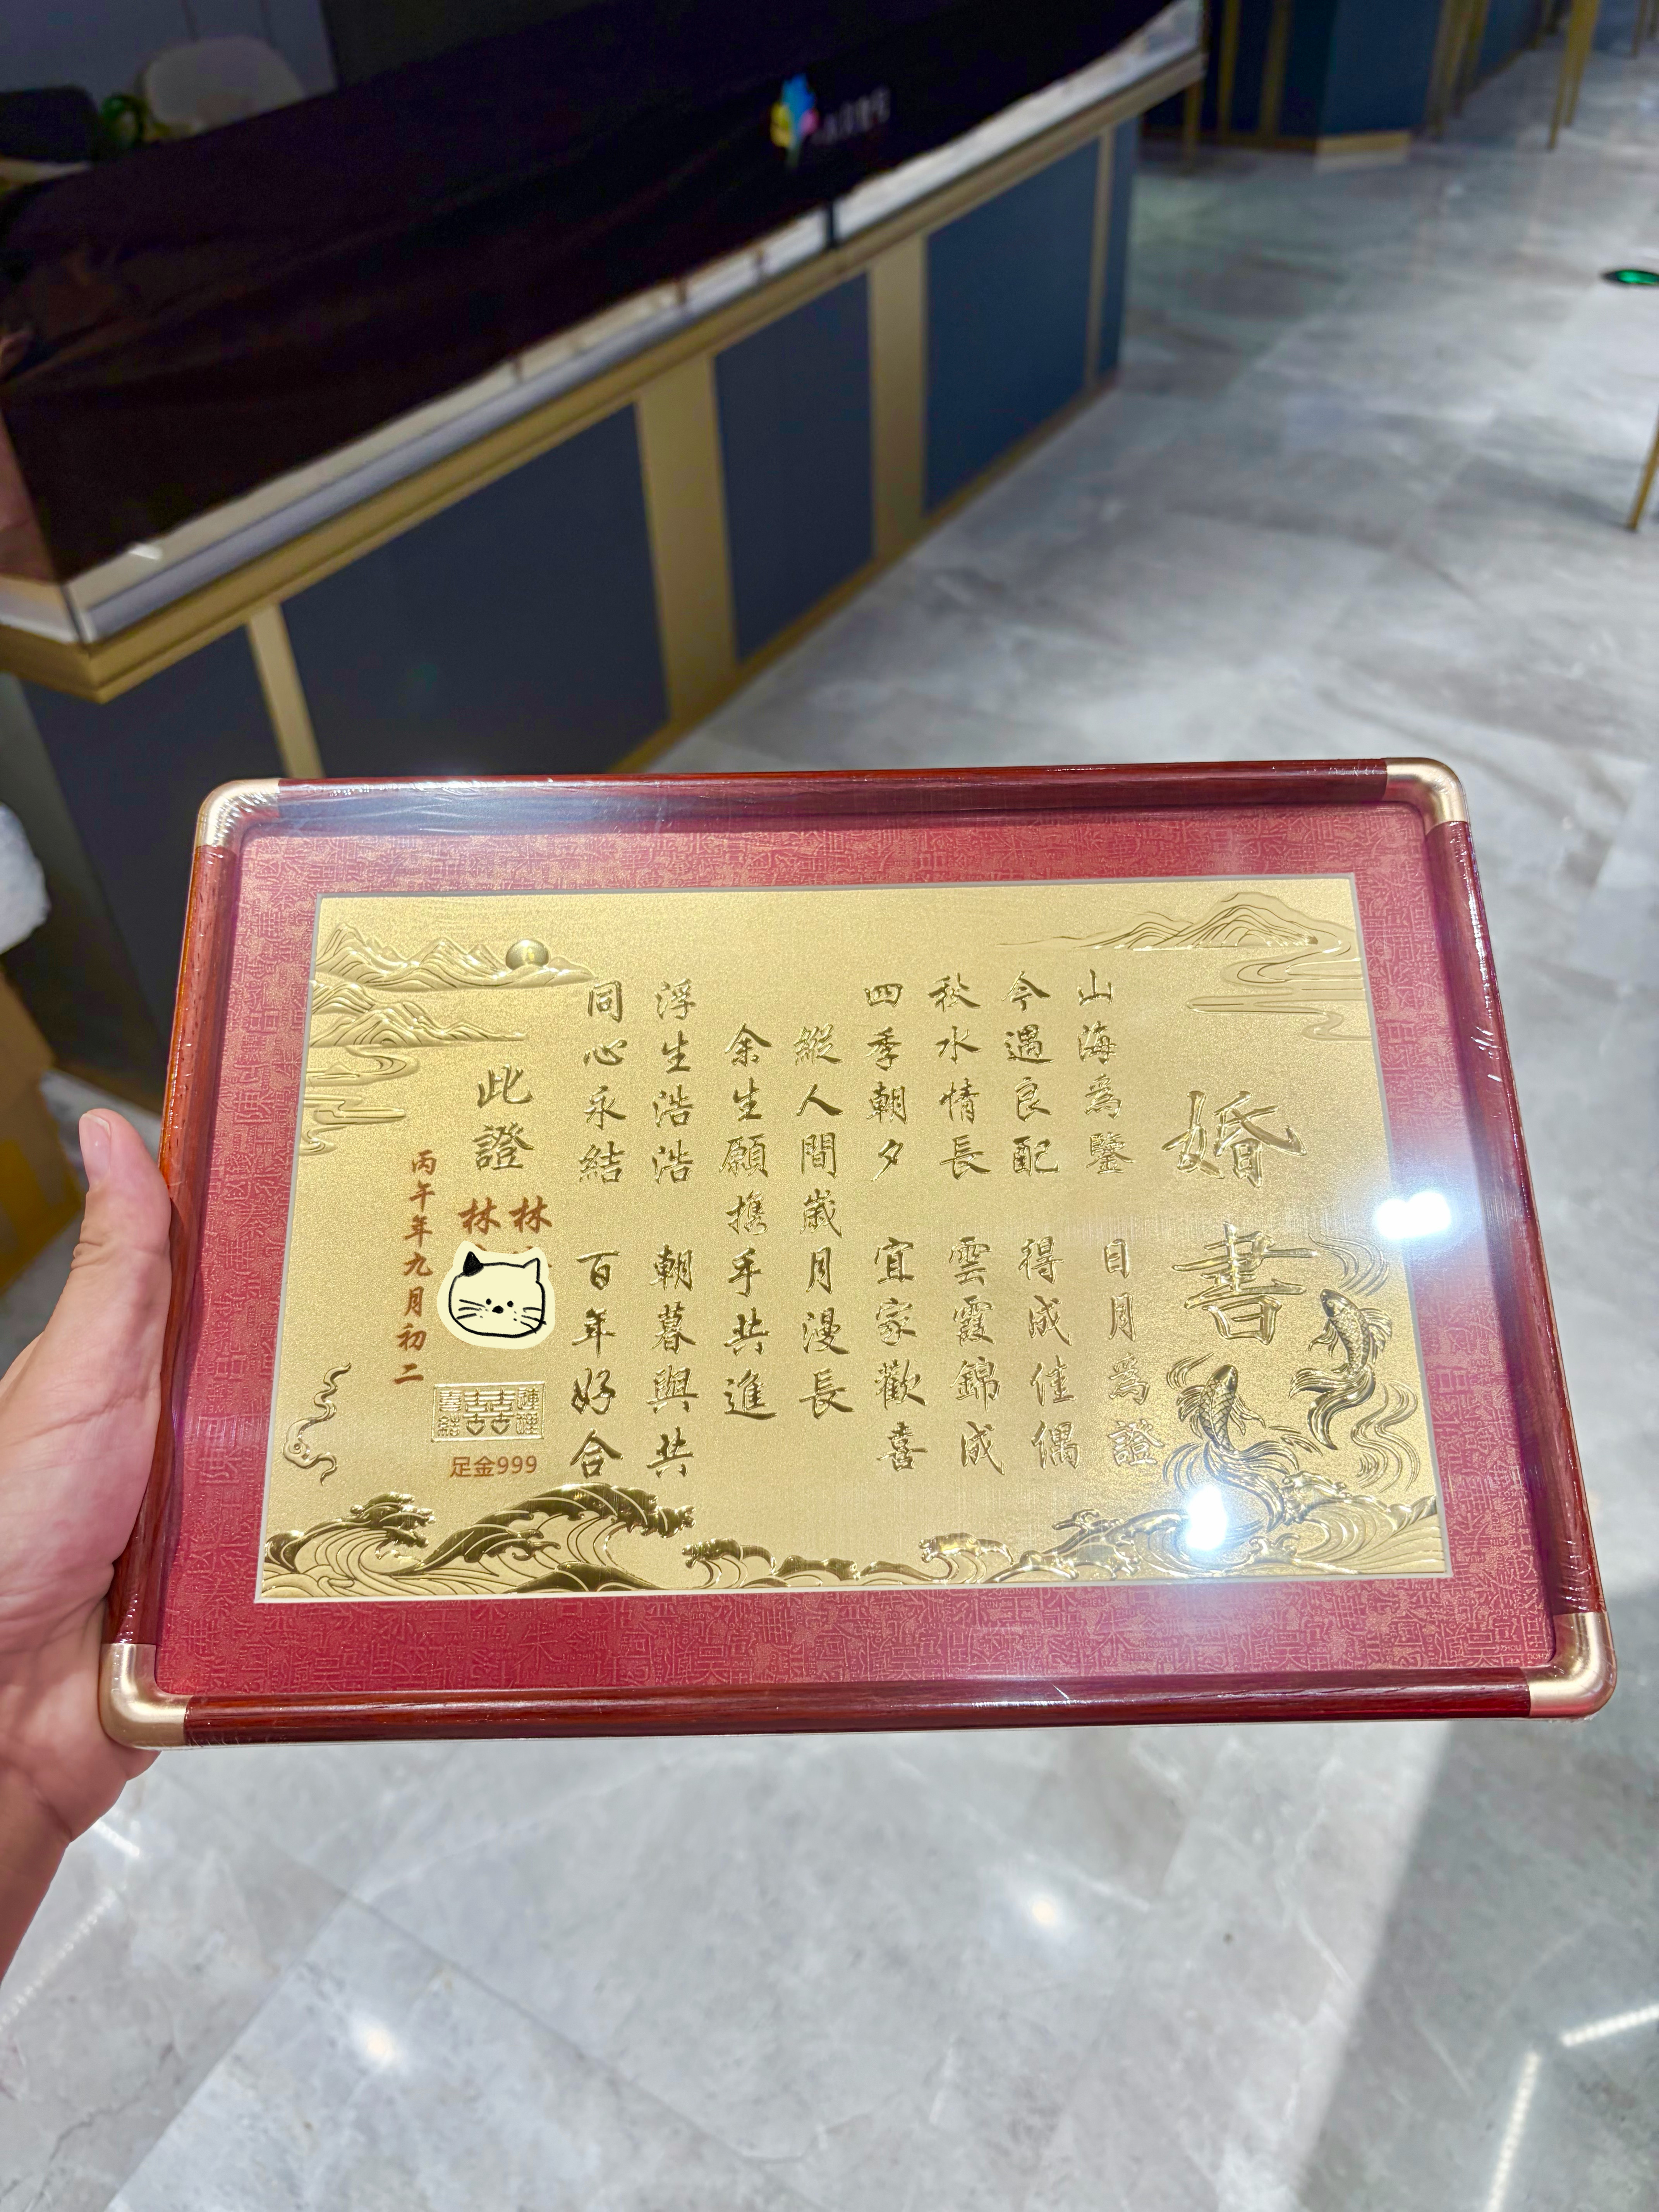 婚書
山海為鑒 日月為證
今遇良配 得成佳偶
秋水情長 雲霞錦成
四季朝夕 宜家歡喜
縱人間歲月漫長
余生願攜手共進
浮生浩浩 朝暮與共
同心永結 百年好合
此證
林
林
丙午年九月初二
足金999